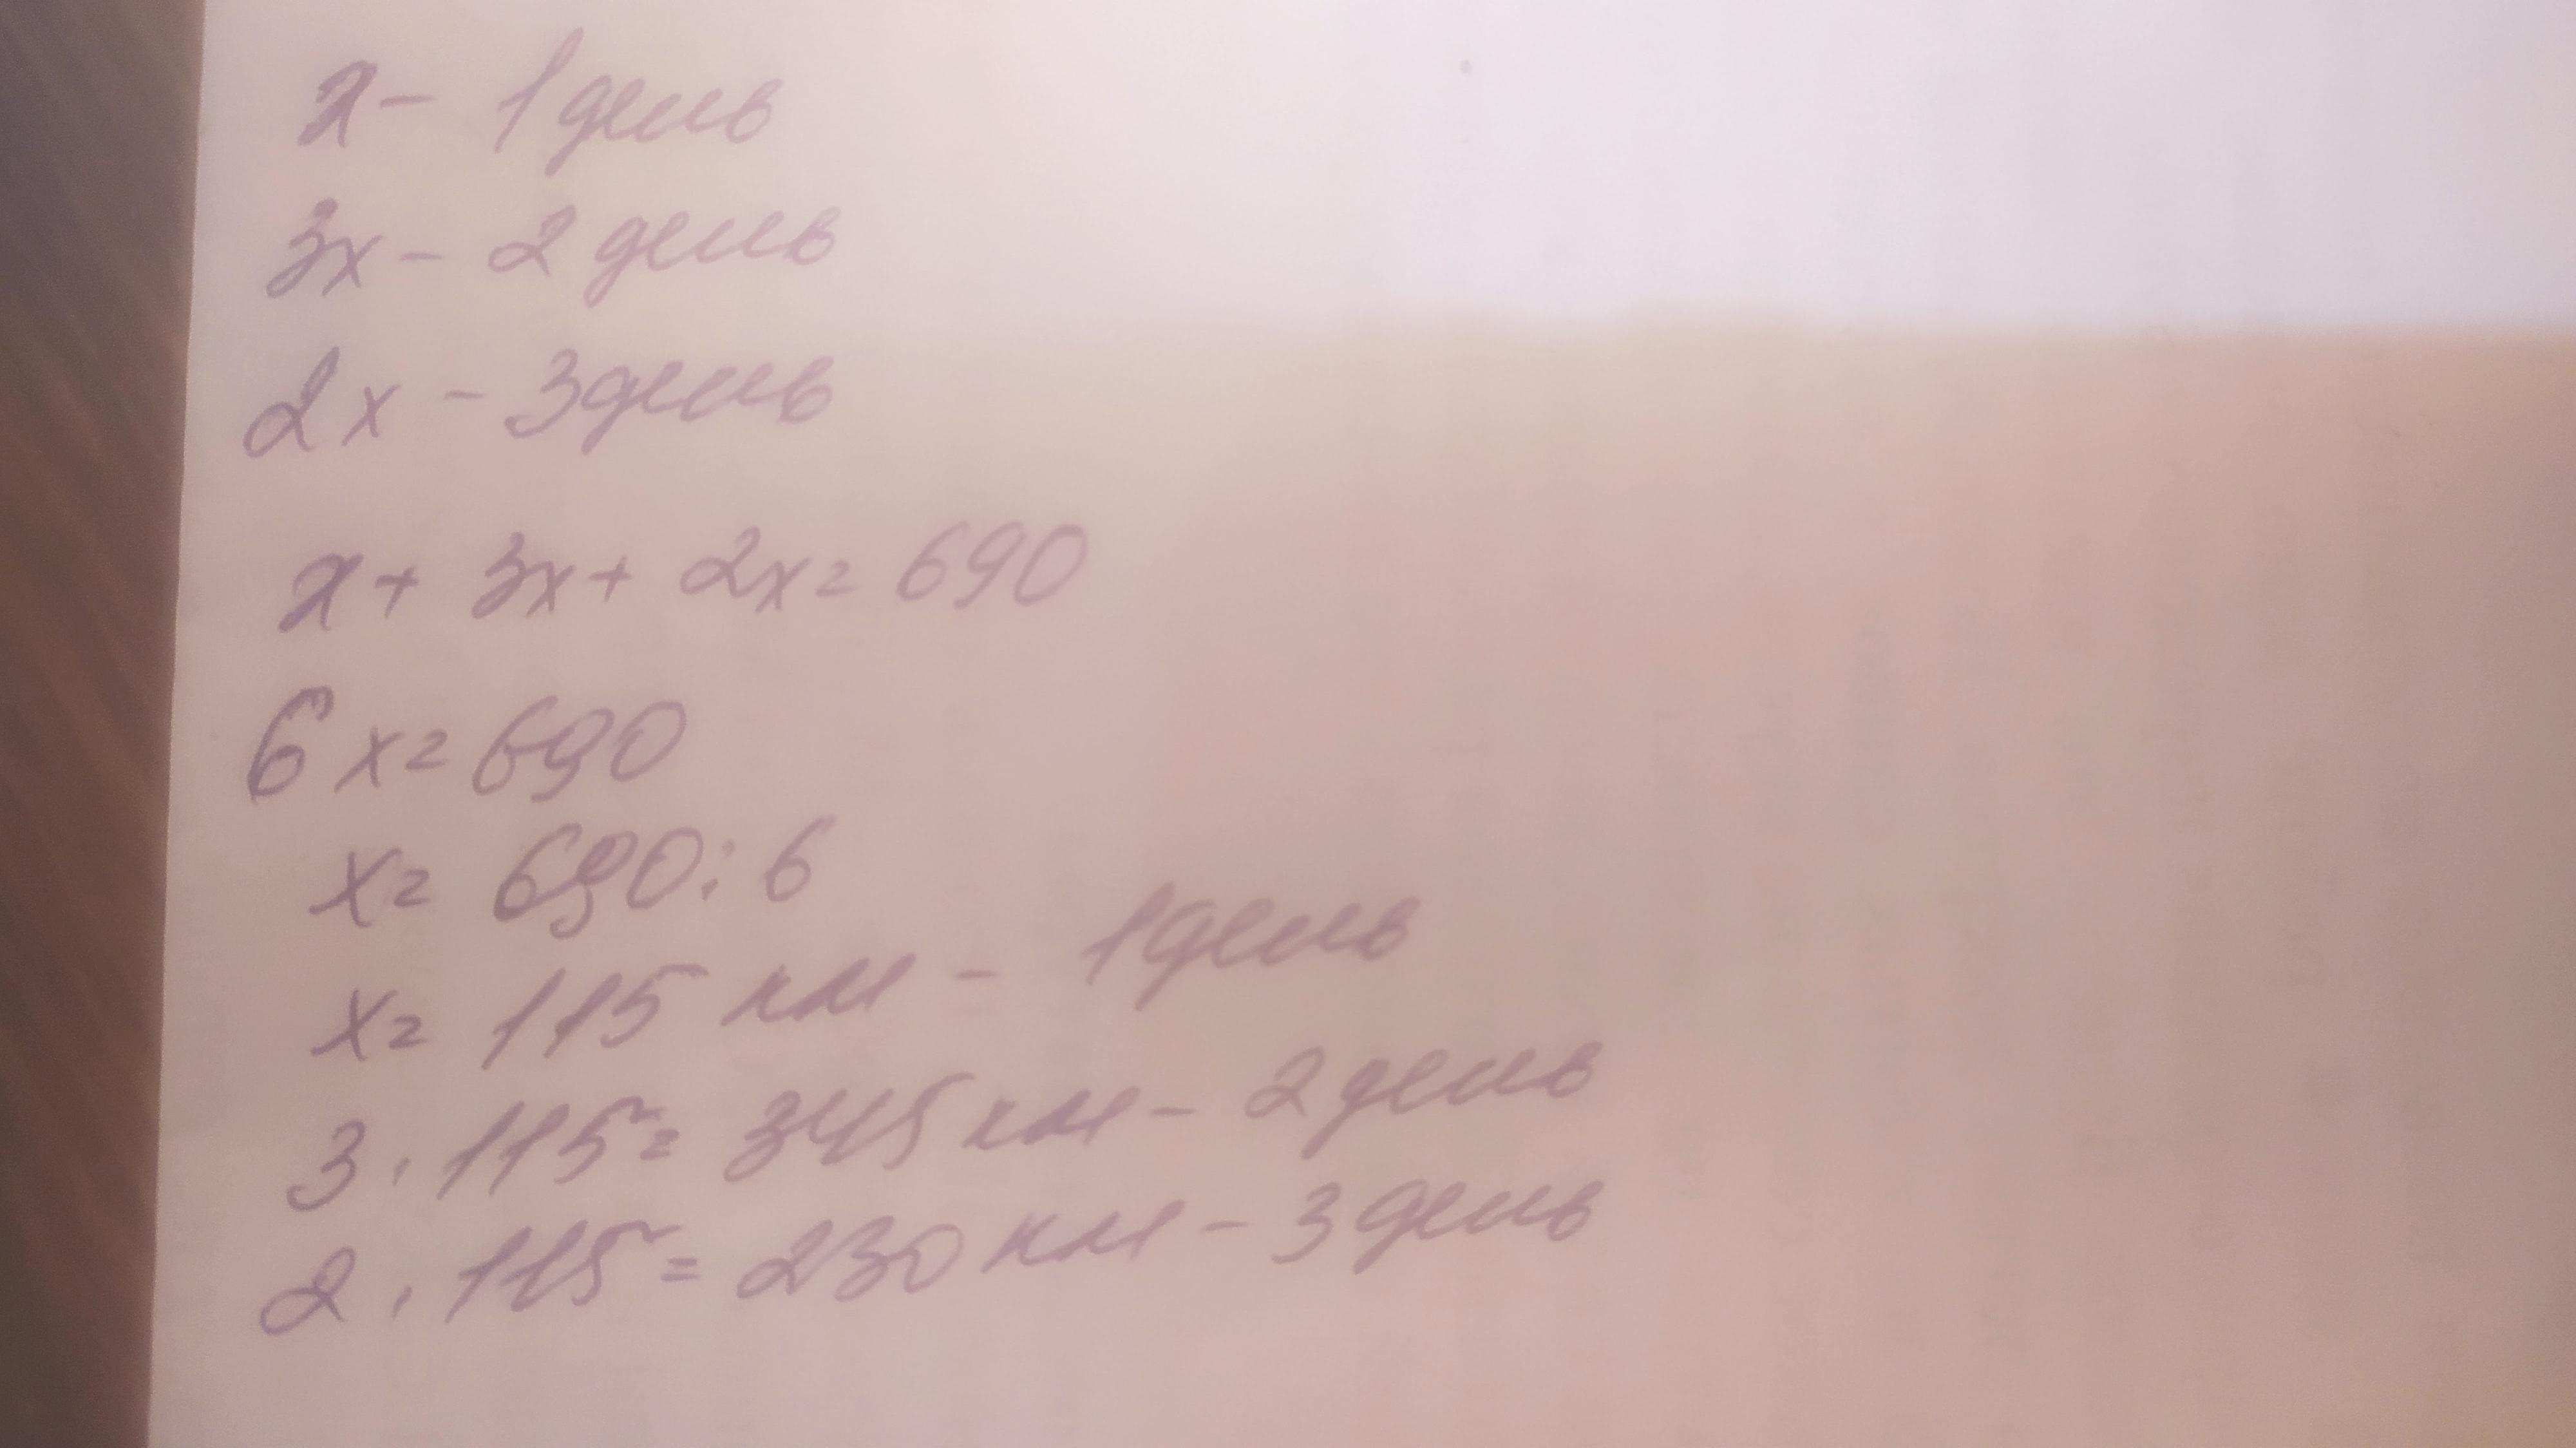 x - 1 день
3x - 2 день
2x - 3 день
x + 3x + 2x = 690
6x = 690
x = 690 : 6
x = 115 км - 1 день
3 · 115 = 345 км - 2 день
2 · 115 = 230 км - 3 день